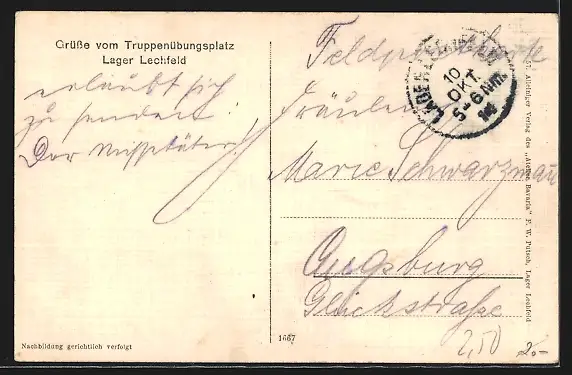 Grüße vom Truppenübungsplatz
Lager Lechfeld
erlaubt sich
zu senden!
Der Missetäter!
Nachbildung gerichtlich verfolgt
1667
Feldpostkarte
LAGER LECHFELD
10
OKT.
5-6 Nm.
14
Fräulein
Marie Schwarzmann
Augsburg
Glückstraße
2,50
2.-
57. Alleiniger Verlag des „Atelier Bavaria" F. W. Putsch, Lager Lechfeld